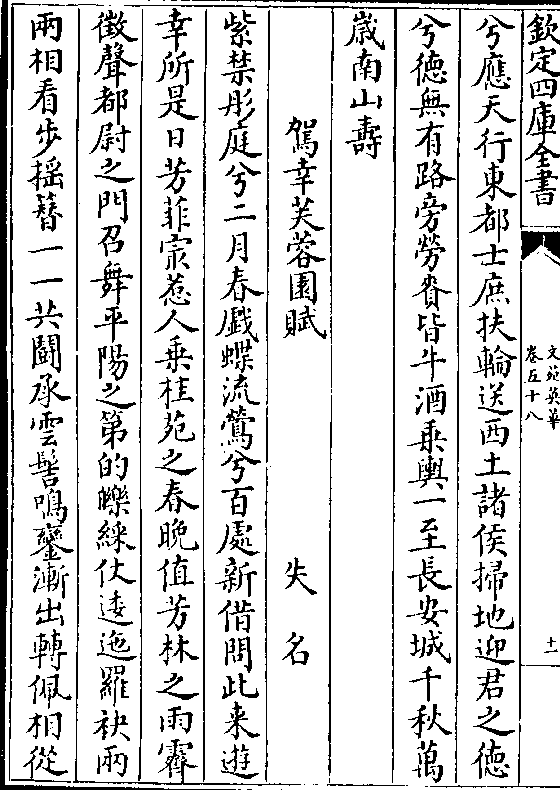 欽定四庫全書
文苑英華
卷五十八
十一
兮應天行東都士庶扶輪送西土諸侯掃地迎君之德
兮德無有路旁勞賚皆牛酒乗輿一至長安城千秋萬
歳南山壽
駕幸芙蓉園賦
失名
紫禁彤庭兮二月春戲蝶流鶯兮百處新借問此来遊
幸所是日芳菲㝡惹人乗桂苑之春晚值芳林之雨霽
徵聲都尉之門召舞平陽之第的皪綵仗逶迤羅袂兩
兩相看歩揺簮一一共鬭承雲髻鳴鑾漸出轉佩相從